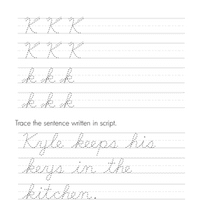 K K K
K K K
k k k
k k k
Trace the sentence written in script.
Kyle keeps his
keys in the
kitchen.